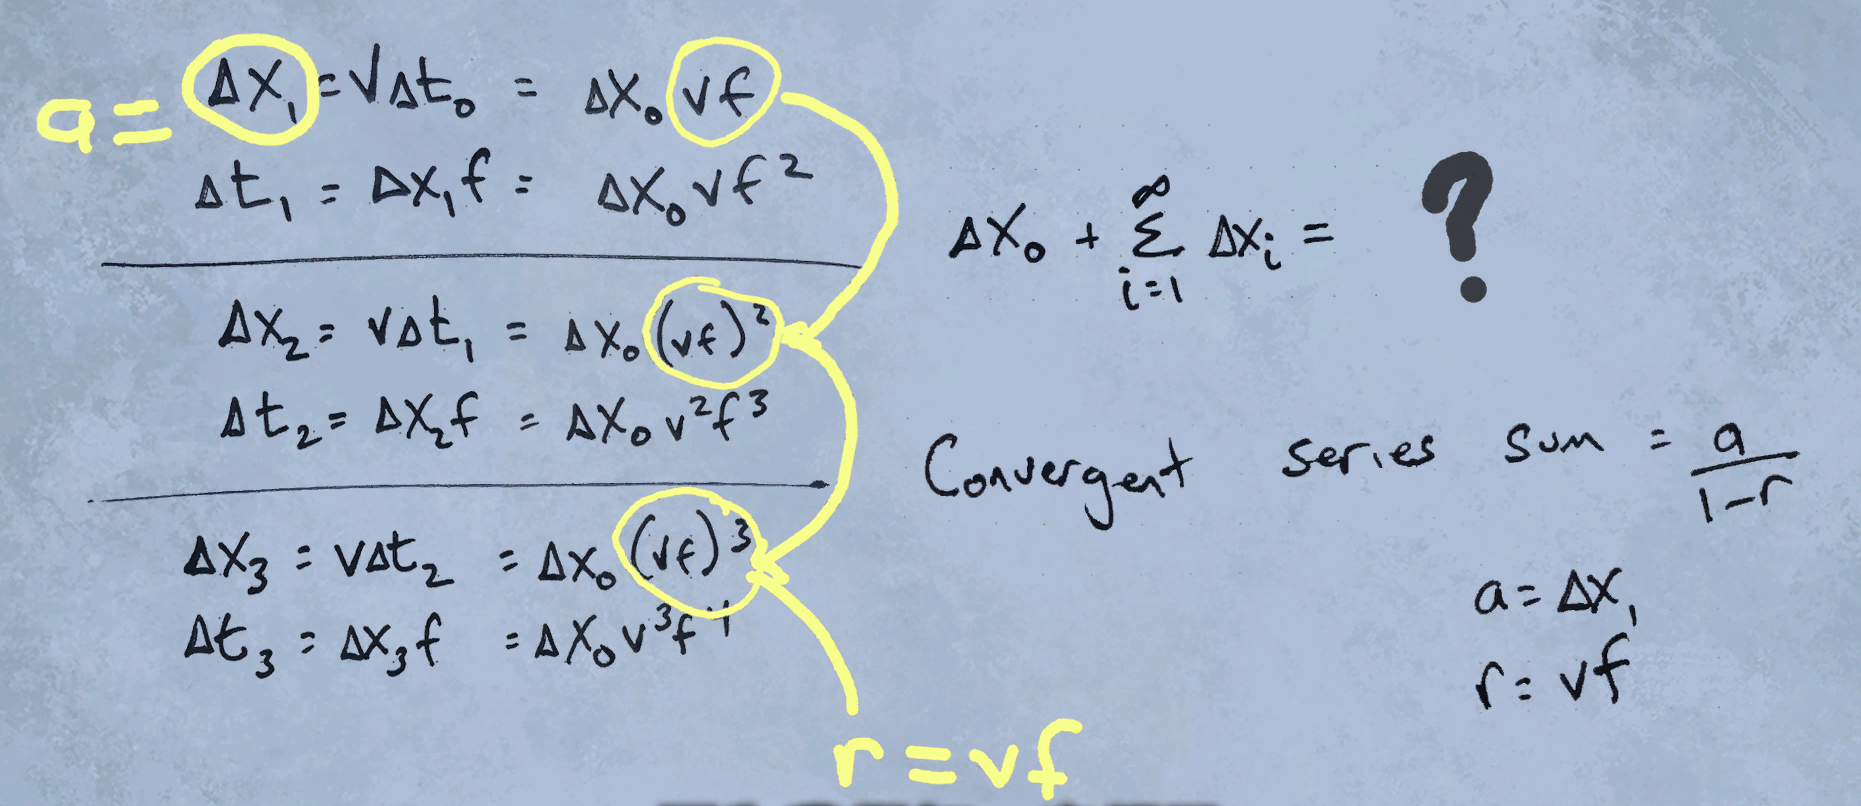 a = Δx₁ = vΔt₀ = Δx₀ vf
Δt₁ = Δx₁f = Δx₀ vf²
Δx₂ = vΔt₁ = Δx₀ (vf)²
Δt₂ = Δx₂f = Δx₀ v²f³
Δx₃ = vΔt₂ = Δx₀ (vf)³
Δt₃ = Δx₃f = Δx₀ v³f⁴
r = vf
Δx₀ + ∞ Σ i=1 Δxᵢ = ?
Convergent series sum = a/(1-r)
a = Δx₁
r = vf